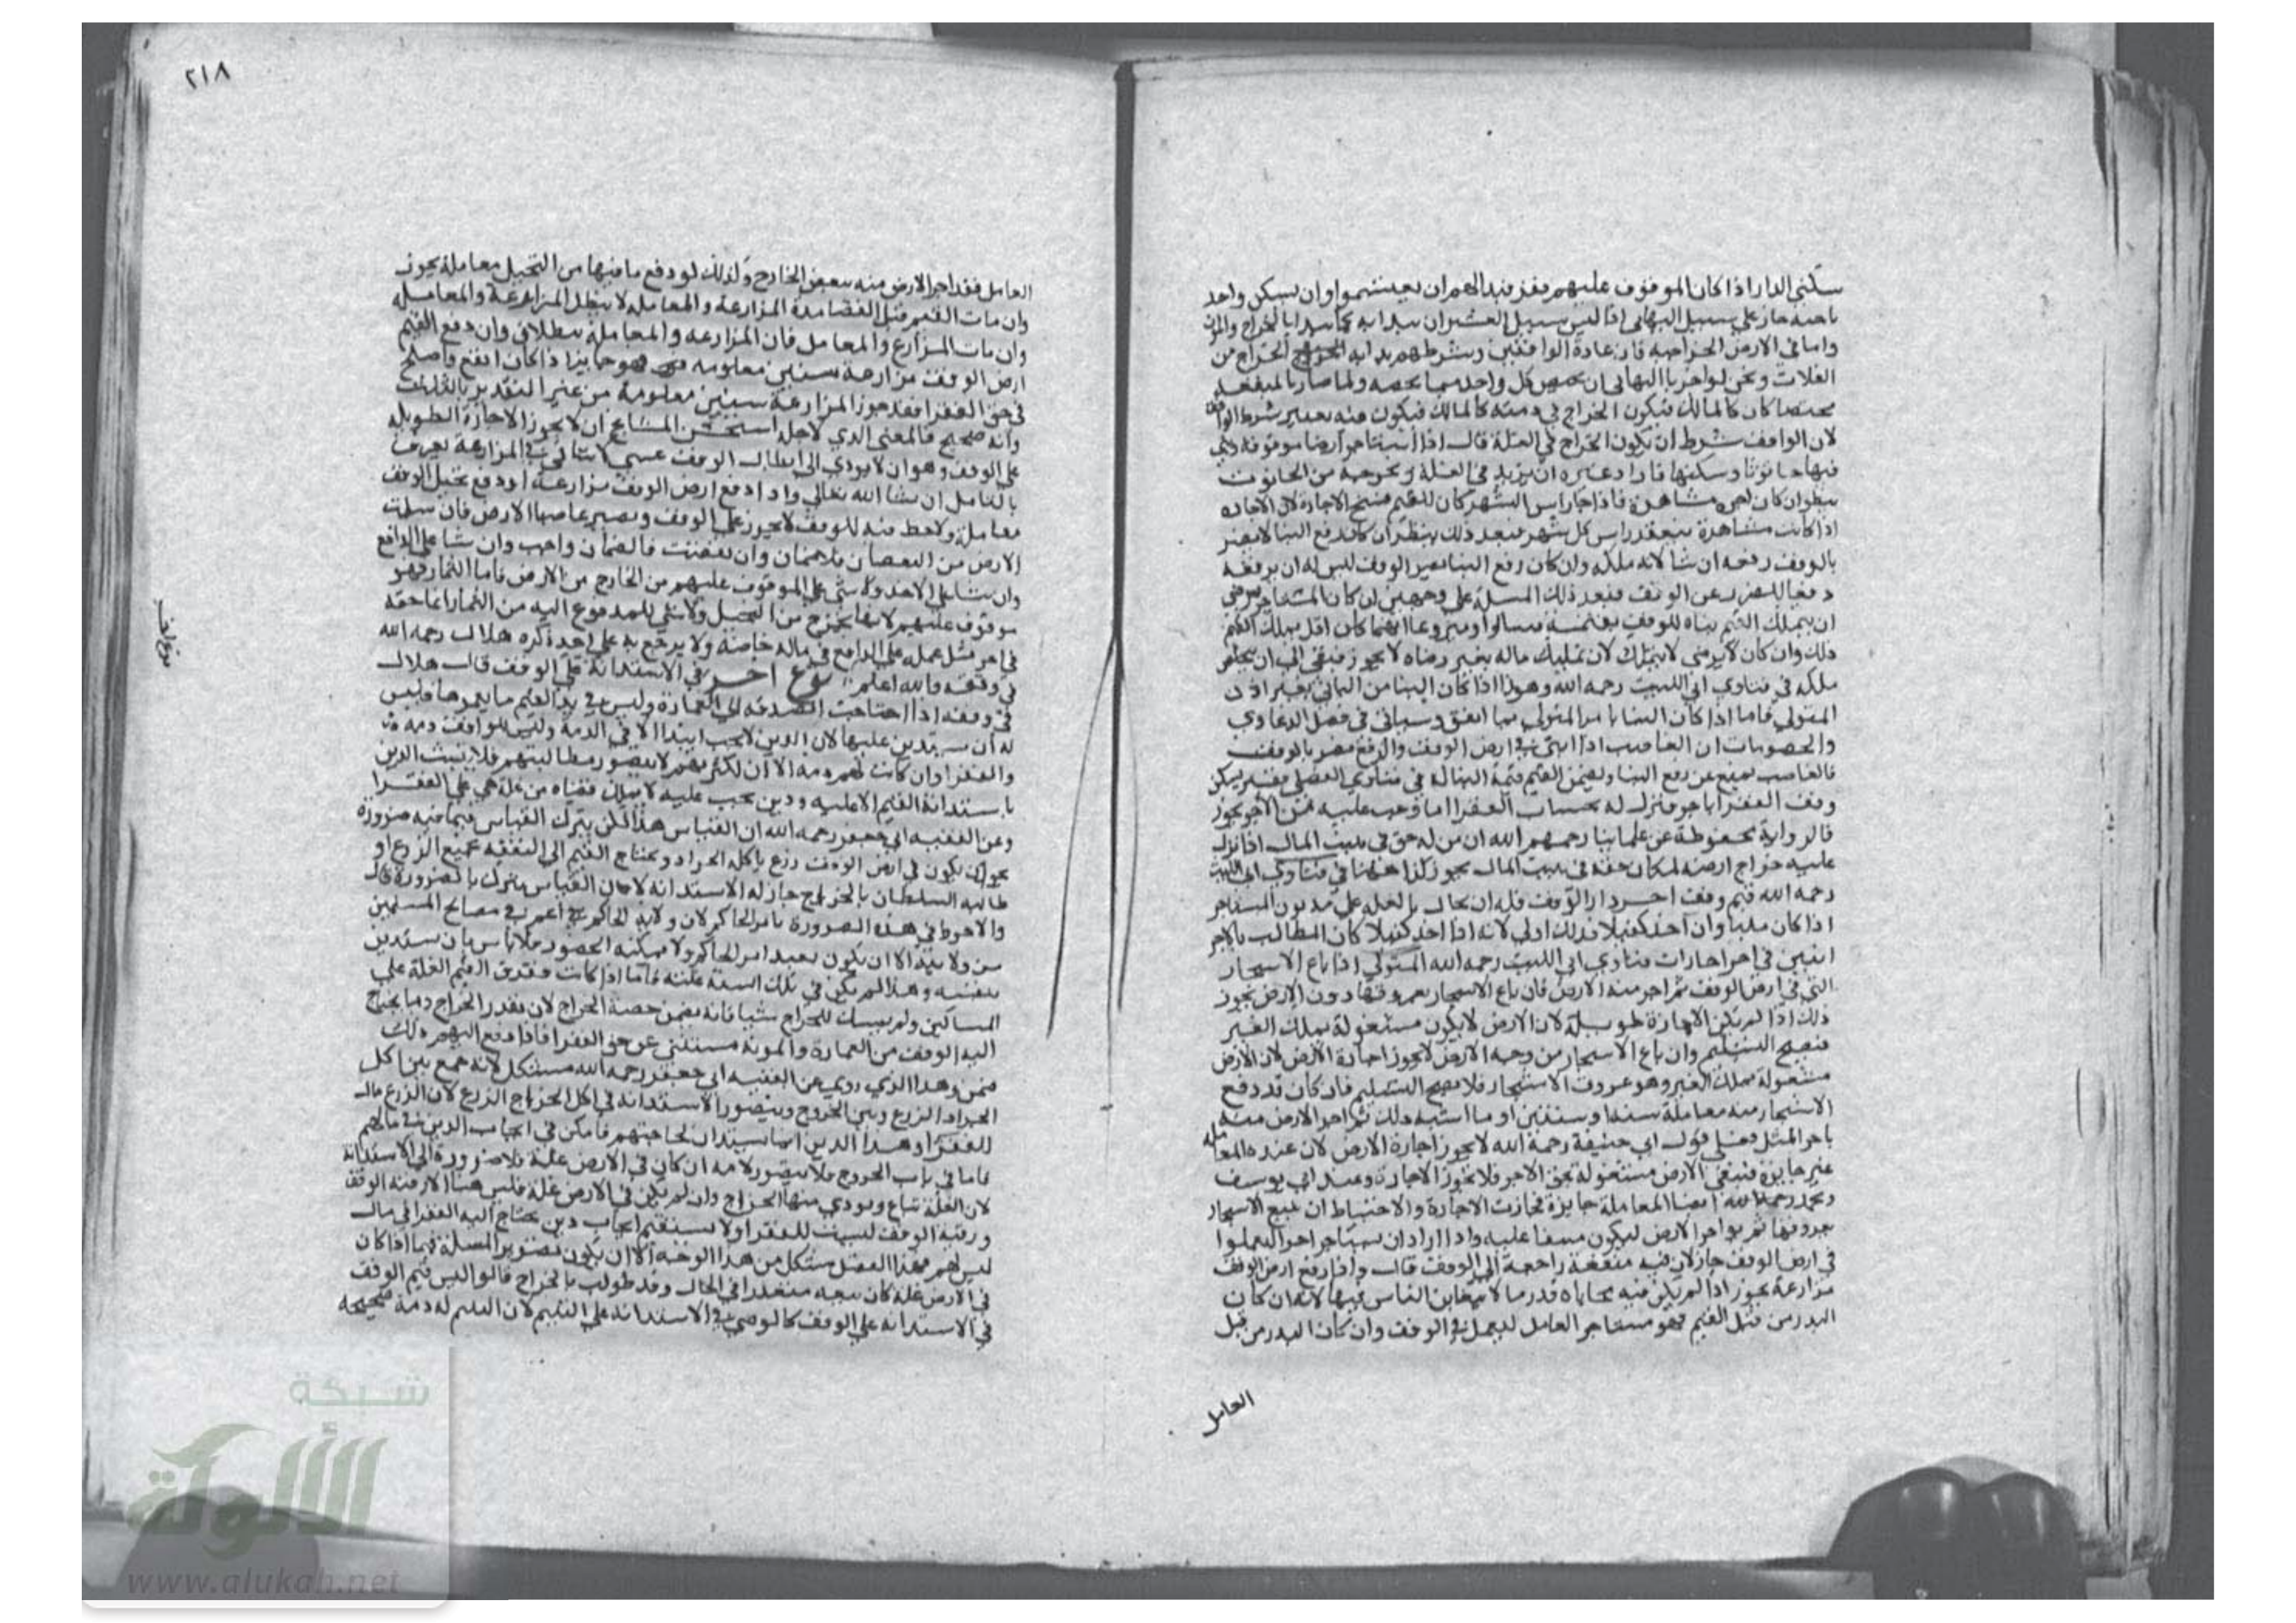 سكنى الدار اذا كان الموقوف عليهم نفر فبدا لهم ان يقتسموا وان يسكن واحد
ناحية جاز على سبيل
واما في الارض الخراجية فان عادة الواقفين وشرطهم بداية الخراج من
الغلات ونحن لو اخرنا
كان كالمالك فيكون الخراج في ذمته كالمالك فيكون فيه تغيير شرط الواقف
لان الواقف شرط ان يكون الخراج في الغلة قال اذا استاجر ارضا موقوفة وبنى
فيها حانوتا وسكنها فاراد غيره ان يزيد في الغلة ويخرجه من الحانوت
ينظر ان كان اجر مشاهرة فاذا جا راس الشهر كان للقيم فسخ الاجارة لان الاجارة
اذا كانت مشاهرة تنعقد راس كل شهر فبعد ذلك ينظر ان كان رفع البنا لا يضر
بالوقف رفعه ان شا لانه ملكه وان كان رفع البنا يضر بالوقف ليس له ان يرفعه
دفعا للضرر عن الوقف فبعد ذلك المسلة على وجهين ان كان المستاجر يرضى
ان يتملك القيم بناه للوقف بقيمته مبنيا او منزوعا ايهما كان اقل يملك القيم
ذلك وان كان لا يرضى لا يتملك لان تمليك ماله بغير رضاه لا يجوز فيبقى الى ان يخلص
ملكه في فتاوي ابي الليث رحمه الله وهذا اذا كان البنا من الباني بغير اذن
المتولي فاما اذا كان البنا بامر المتولي بما انفق وسياتي في فصل الدعاوي
والخصومات ان الغاصب اذا بنى في ارض الوقف والرفع مضر بالوقف
فالغاصب يمنع عن رفع البنا ويضمن القيم قيمة البنا له في فتاوي الفضلي فقير يسكن
وقف الفقرا باجر فترك له بحساب الفقرا ما وجب عليه من الاجر يجوز
فالرواية محفوظة عن علماينا رحمهم الله ان من له حق في بيت المال اذا ترك
عليه خراج ارضه لمكان حقه في بيت المال يجوز كذا ههنا في فتاوي ابي الليث
رحمه الله قيم وقف اجر دار الوقف فله ان يحتال بالغلة على مديون المستاجر
اذا كان مليا وان اخذ كفيلا فذلك اولى لانه اذا اخذ كفيلا كان المطالب بالاجر
اثنين في اخر اجارات فتاوي ابي الليث رحمه الله المتولي اذا باع الاشجار
التي في ارض الوقف ثم اجر منه الارض فان باع الاشجار بعروقها دون الارض يجوز
ذلك اذا لم تكن الاجارة طويلة لان الارض لا يكون مشغولة بملك الغير
فيصح التسليم وان باع الاشجار من وجه الارض لا يجوز اجارة الارض لان الارض
مشغولة بملك الغير وهو عروق الاشجار فلا يصح التسليم فان كان قد دفع
الاشجار منه معاملة سنة او سنتين او ما اشبه ذلك ثم اجر الارض منه
باجر المثل فعلى قول ابي حنيفة رحمة الله لا يجوز اجارة الارض لان عنده المعاملة
غير جايزة فتبقى الارض مشغولة بحق الاجر فلا تجوز الاجارة وعند ابي يوسف
ومحمد رحمهما الله ايضا المعاملة جايزة فجازت الاجارة والاحتياط ان يبيع الاشجار
بعروقها ثم يواجر الارض ليكون متفقا عليه واذا اراد ان يستاجر اجرا ليعملوا
في ارض الوقف جاز لان فيه منفعة راجعة الى الوقف قال واذا دفع ارض الوقف
مزارعة يجوز اذا لم يكن فيه محاباة قدر ما لا يتغابن الناس فيها لانه ان كان
البدر من قبل القيم فهو مستاجر العامل ليعمل في الوقف وان كان البدر من قبل
العامل
٢١٨
العامل فقد اجر الارض منه ببعض الخارج وكذلك لو دفع ما فيها من النخيل معاملة يجوز
وان مات القيم قبل انقضا مدة المزارعة والمعاملة لا يبطل المزارعة والمعاملة
وان مات المزارع والمعامل فان المزارعه والمعاملة يبطلان وان دفع القيم
ارض الوقف مزارعة سنين معلومه فهو جايز اذا كان انفع واصلح
في حق الفقرا فقد جوز المزارعة سنين معلومة من غير التقدير بالثلاث
وانه صحيح فالمعنى الذي لاجله استحسن المشايخ ان لا يجوز الاجازة الطويلة
على الوقف وهو ان لا يودي الى ابطال الوقف عسى لا يتاتى في المزارعة يعرف
بالتامل ان شا الله تعالى واذا دفع ارض الوقف مزارعة او دفع نخيل الوقف
معاملة ولاحظ فيه للوقف لا يجوز على الوقف ويصير غاصبا الارض فان سلمت
الارض من النقصان فلا ضمان وان نقصت فالضمان واجب وان شا على الدافع
وان شا على الاخذ ولا شي على الموقوف عليهم من الخارج من الارض فاما الثمار فهو
موقوف عليهم لانها تخرج من النخيل ولا شي للمدفوع اليه من الثمار انما حقه
في اجر مثل عمله على الدافع في ماله خاصة ولا يرجع به على احد ذكره هلال رحمه الله
في وقفه والله اعلم نوع اخر في الاستدانة على الوقف قال هلال
في وقفه اذا احتاجت الصدقه الى العمارة وليس في يد القيم ما يعمرها فليس
له ان يستدين عليها لان الدين لا يجب ابتدا الا في الذمة وليس للواقف ذمه
والفقرا وان كانت لهم ذمة الا ان لكثرتهم لا يتصور مطالبتهم فلا يثبت الدين
باستدانة القيم الا عليه ودين يجب عليه لا يملك قضاه من غلة هي على الفقرا
وعن الفقيه ابي جعفر رحمه الله ان القياس هذا لكن يترك القياس فيما فيه ضرورة
نحو ان يكون في ارض الوقف زرع ياكله الجراد ويحتاج القيم الى النفقه لجميع الزرع او
طالبه السلطان بالخراج جاز له الاستدانه لان القياس يترك بالضرورة قال
والاحوط في هذه الضرورة بامر الحاكم لان ولاية الحاكم اعم في مصالح المسلمين
من ولايته الا ان يكون بعيدا من الحاكم ولا يمكنه الحضور فلا باس بان يستدين
بنفسه وهذا لم يكن في تلك السنة غلة فاما اذا كانت ففرق القيم الغلة على
المساكين ولم يمسك للخراج شيا فانه يضمن حصة الخراج لان بقدر الخراج وما يحتاج
اليه الوقف من العمارة والمونة مستثنى عن حق الفقرا فاذا دفع اليهم ذلك
ضمن وهذا الذي روي عن الفقيه ابي جعفر رحمه الله مشكل لانه جمع بين اكل
الجراد الزرع وبين الخروج ويتصور الاستدانه في اكل الجراد الزرع لان الزرع مال
للفقرا وهذا الدين انما يستدان لحاجتهم فامكن في ايجاب الدين في مالهم
فاما في باب الخروج فلا يتصور لانه ان كان في الارض غلة فلا ضرورة الى الاستدانة
لان الغلة تباع ويودي منها الخراج وان لم يكن في الارض غلة فليس هنا الا رقبة الوقف
ورقبة الوقف ليست للفقرا ولا يستقيم ايجاب دين يحتاج اليه الفقرا في مال
ليس لهم فهذا الفصل مشكل من هذا الوجه الا ان يكون تصوير المسلة فيما اذا كان
في الارض غلة كان بيعه متعذرا في الحال وقد طولب بالخراج قالوا ليس قيم الوقف
في الاستدانه على الوقف كالوصي في الاستدانه على اليتيم لان اليتيم له ذمة صحيحه
شبكة
الألوكة
www.alukah.net